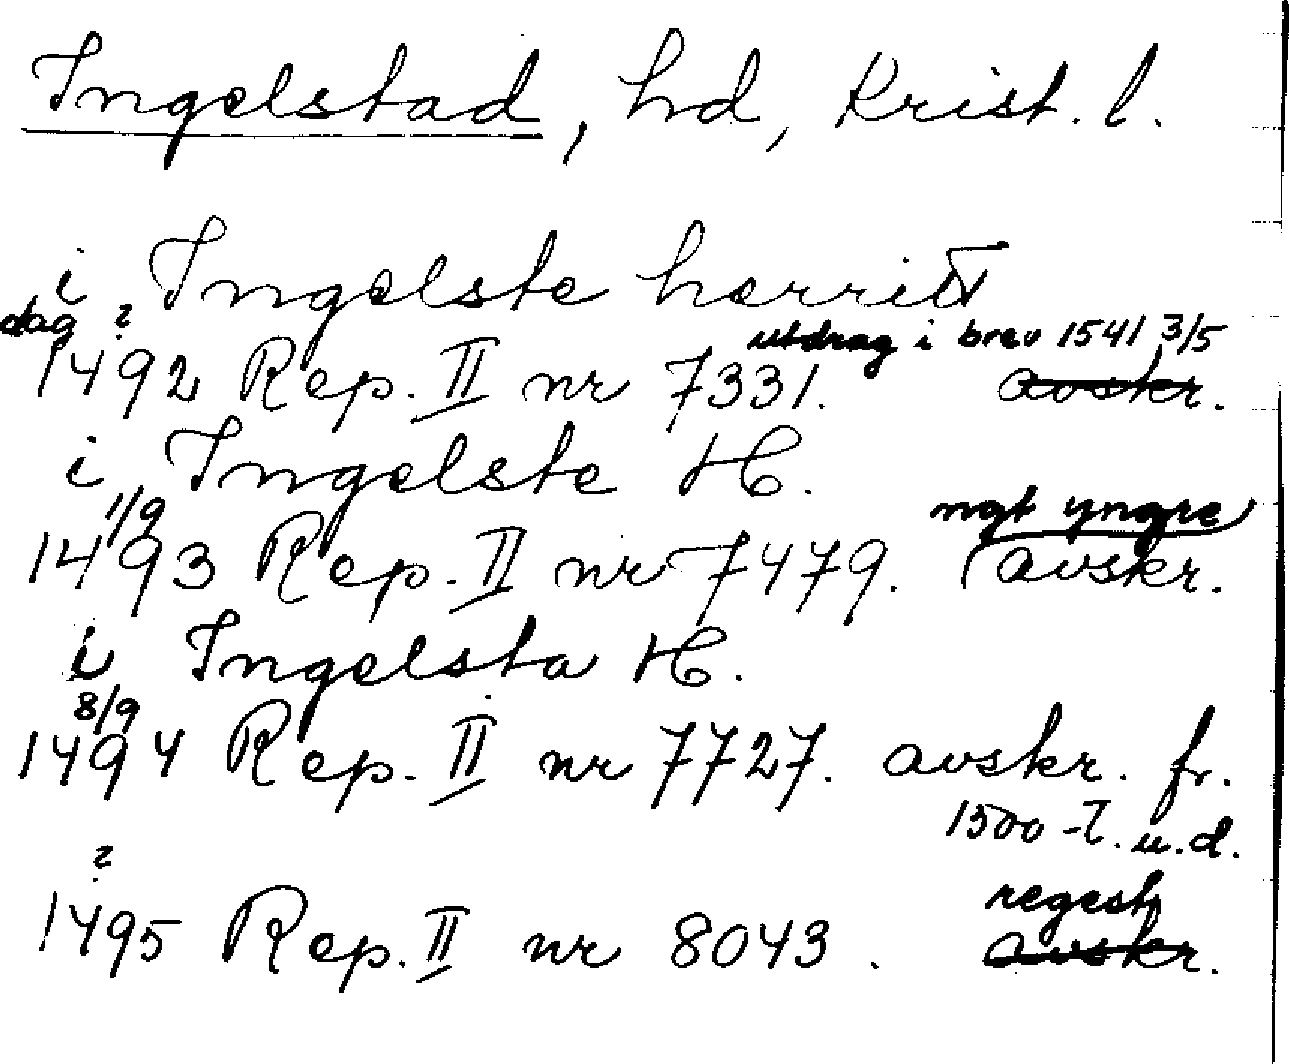 Ingelstad, hd, Krist. l.
i Ingelste herritt
dag ? utdrag i brev 1541 3/5
1492 Rep. II nr 7331. avskr.
i Ingelste H.
1/9 ngt yngre
1493 Rep. II nr 7479. avskr.
i Ingelsta H.
8/9
1494 Rep. II nr 7727. avskr. fr.
1500-t. u.d.
?
regest
1495 Rep. II nr 8043. avskr.